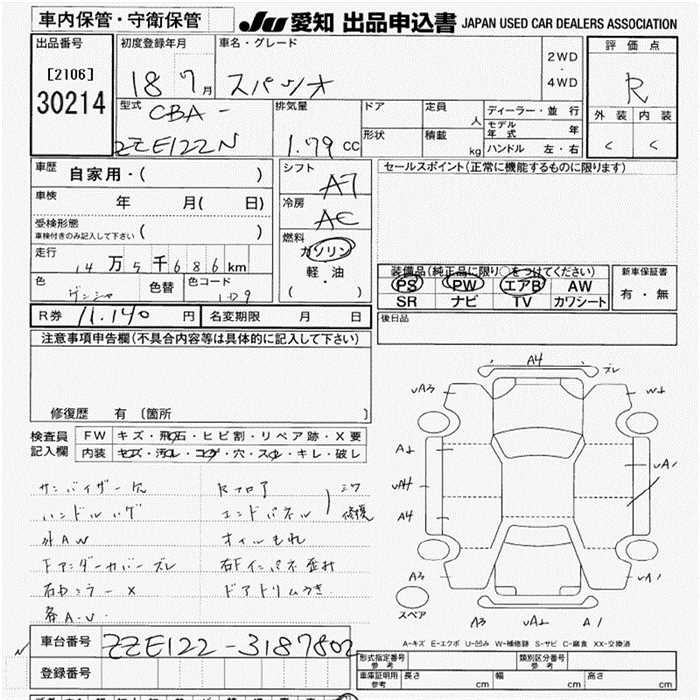 車内保管・守衛保管
JU 愛知 出品申込書 JAPAN USED CAR DEALERS ASSOCIATION
出品番号
[2106]
30214
初度登録年月
18 7月
車名・グレード
スパシオ
2WD
・
4WD
評価点
R
外装 内装
C C
型式
CBA-
ZZE122N
排気量
1.79 cc
ドア
形状
定員
人
積載
kg
ディーラー・並行
モデル年式 年
ハンドル 左・右
車歴
自家用・( )
車検
年 月( 日)
受検形態
車検付きのみ記入して下さい ( )
走行
14万5千686km
色
色替
色コード
1D9
シフト
AT
冷房
AC
燃料
ガソリン
軽・油
( ・ )
セールスポイント(正常に機能するものに限ります)
装備品(純正品に限り○をつけてください)
PS PW エアB AW
SR ナビ TV カワシート
新車保証書
有・無
後日品
R券 11,140 円
名変期限 月 日
注意事項申告欄(不具合内容等は具体的に記入して下さい)
修復歴 有 〔箇所 〕
検査員
記入欄
FW キズ・飛石・ヒビ割・リペア跡・X要
内装 キズ・汚レ・コゲ・穴・スレ・キレ・破レ
サンバイザー穴
ハンドルハゲ
外AW
Fアンダーカバーズレ
Rフロア
エンドパネル
オイルもれ
右Fインパネ歪み
ドアトリムうき
A4
ズレ
uA3
W2
A2
uA4
A4
uA1
A3
uA1
スペア
A3
uA2
A1
A-キズ E-エクボ U-凹み W-補修跡 S-サビ C-腐食 XX-交換済
車台番号
ZZE122-3187802
登録番号
形式指定番号
参考
類別区分番号
参考
車庫証明用
参考
長さ cm
幅 cm
高さ cm